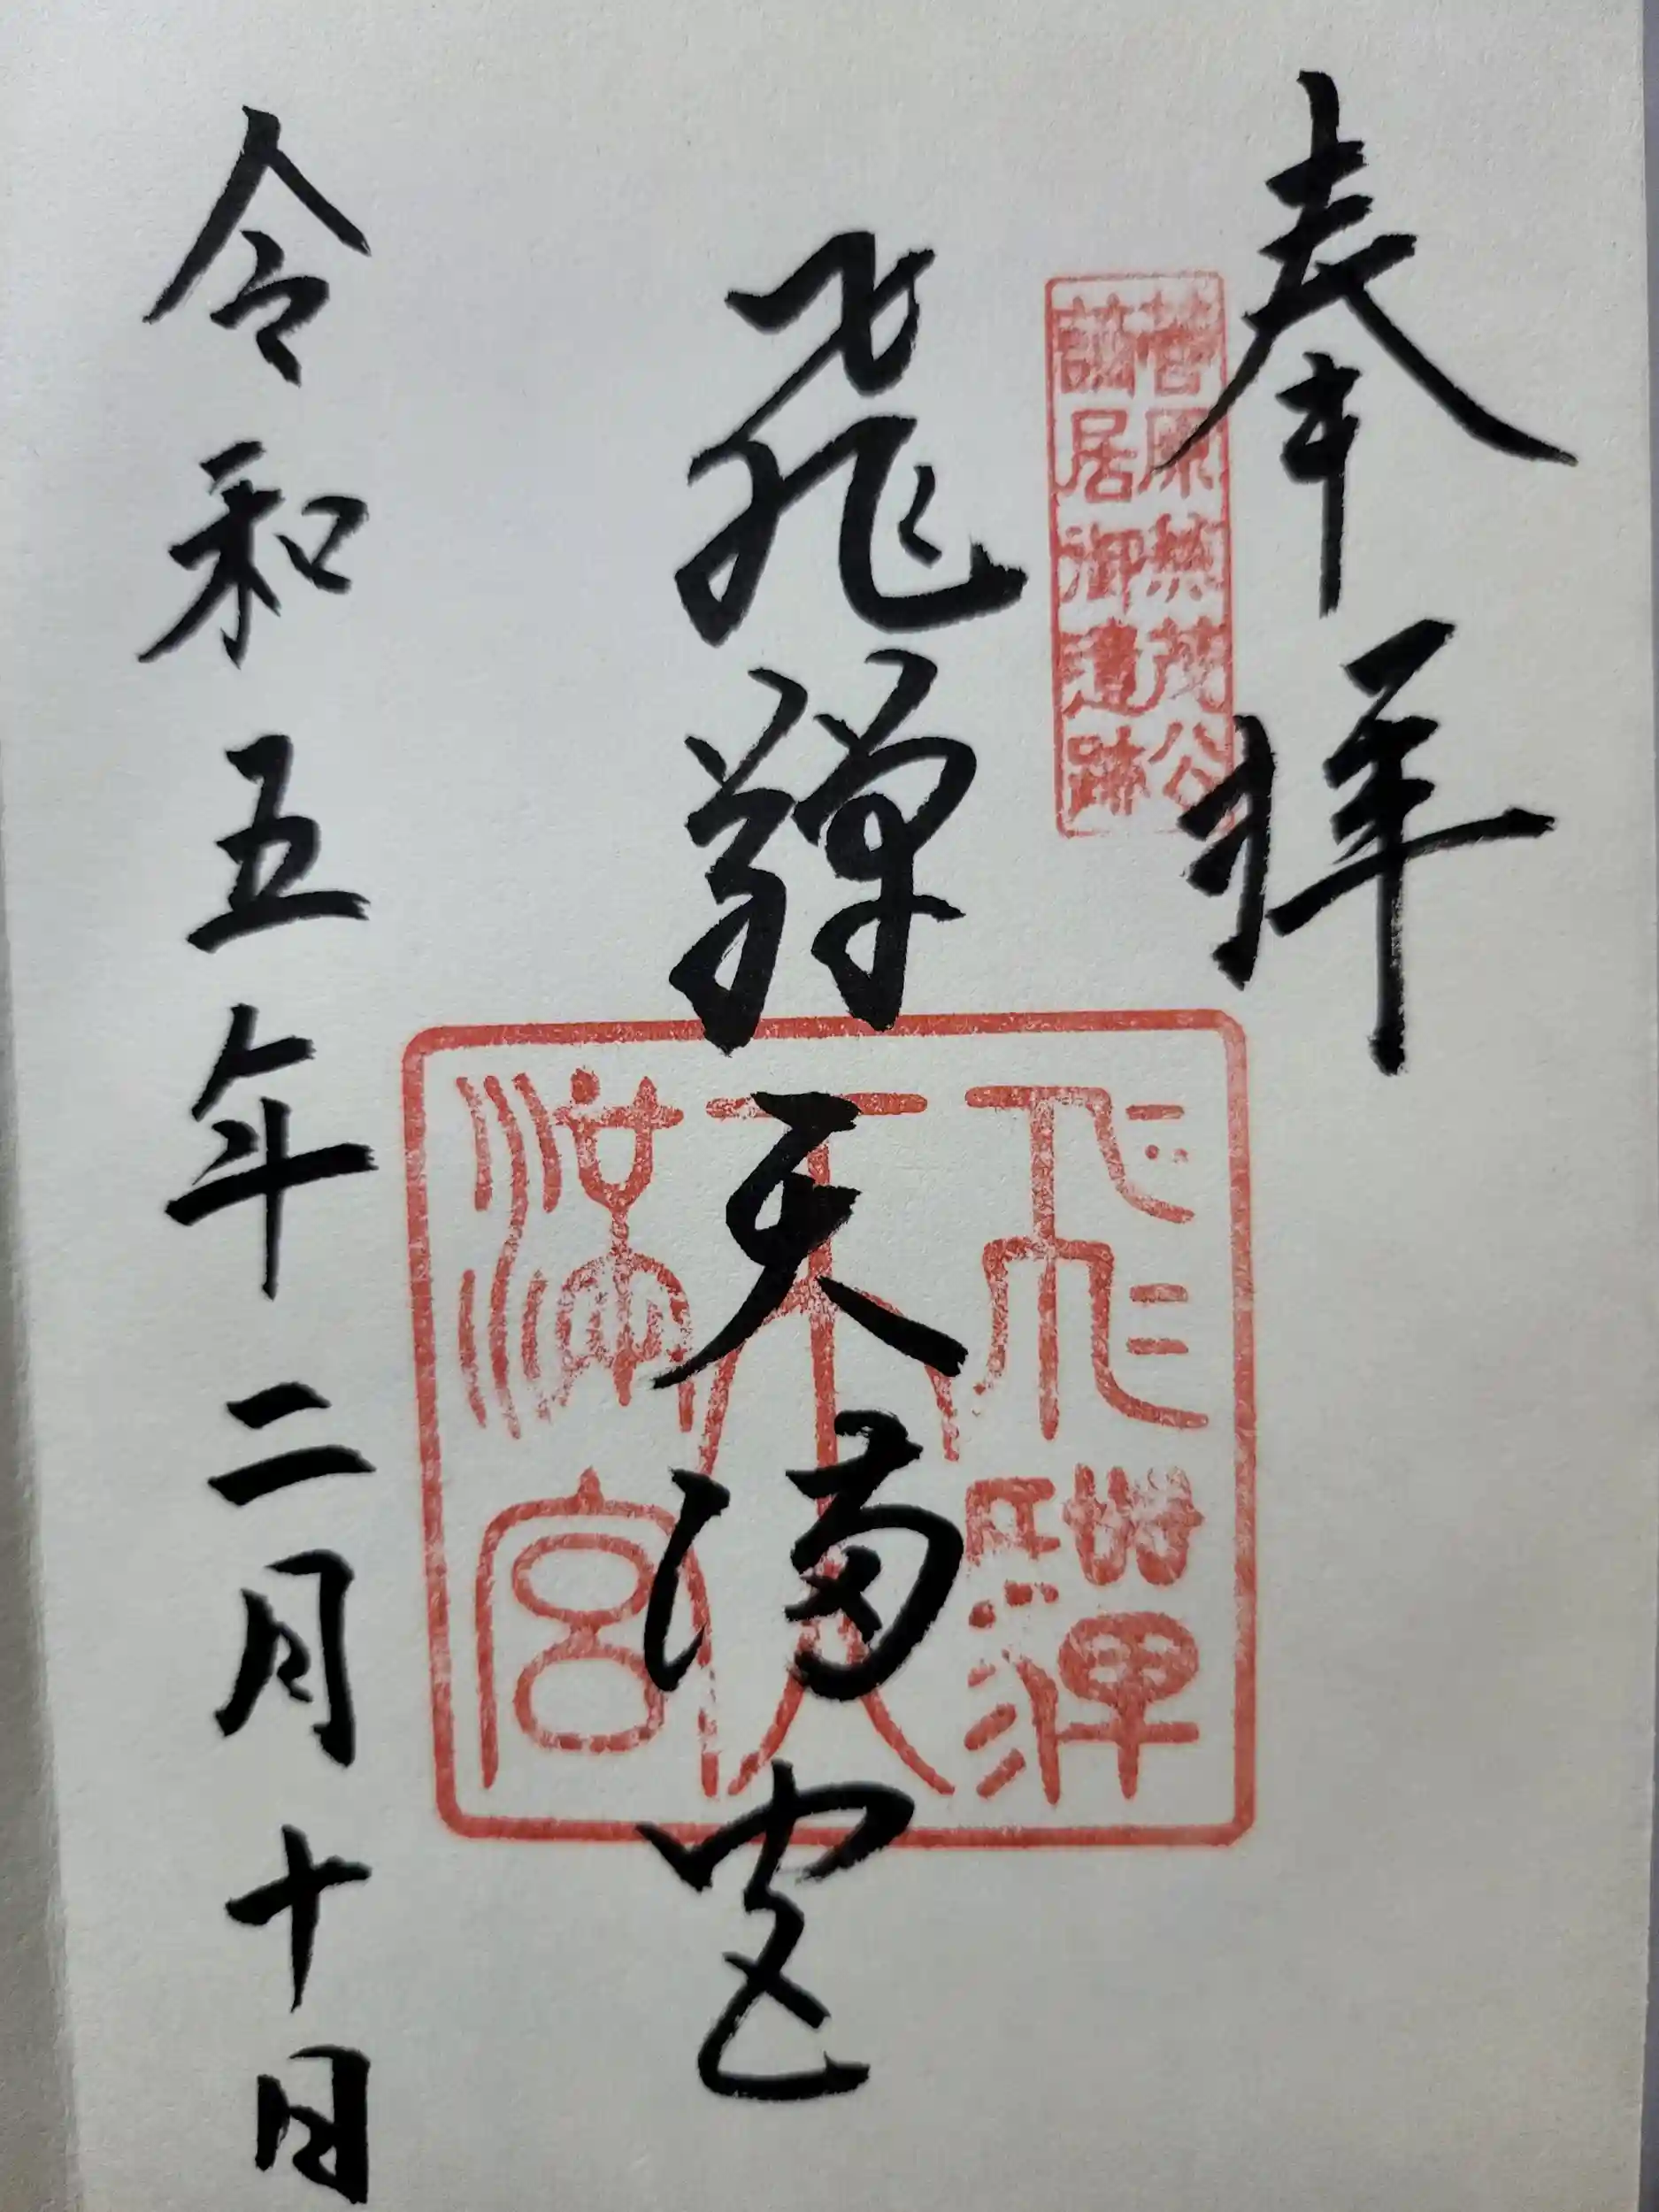 奉拝
菅原兼茂公
謫居御遺跡
飛騨天満宮
飛騨天満宮
令和五年二月十日